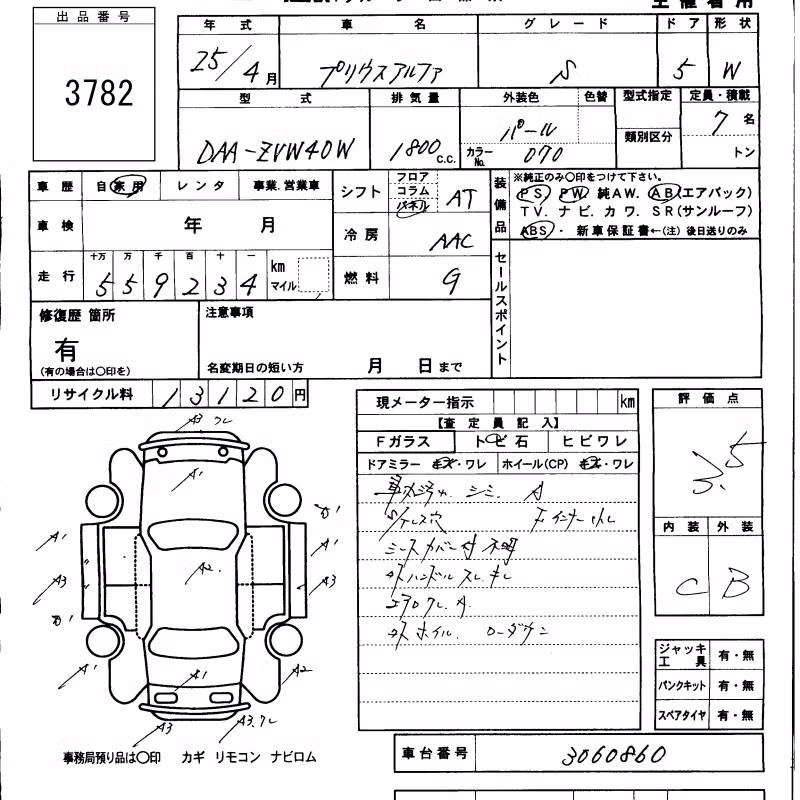 出品番号
3782
年式 車名 グレード ドア 形状
25/4月 プリウスアルファ S 5 W
型式 排気量 外装色 色替 型式指定 定員・積載
DAA-ZVW40W 1800 c.c. パール 7名
カラーNo. 070 類別区分 トン
車歴 自家用 レンタ 事業.営業車
車検 年 月
走行 十万 万 千 百 十 一
5 5 9 2 3 4 km マイル
シフト フロア コラム パネル AT
冷房 AAC
燃料 G
装備品
※純正のみ〇印をつけて下さい。
PS PW 純AW. AB(エアバック)
TV. ナビ. カワ. SR(サンルーフ)
ABS・ 新車保証書←(注) 後日送りのみ
セールスポイント
修復歴 箇所
有
(有の場合は〇印を)
注意事項
名変期日の短い方 月 日まで
リサイクル料 13120円
現メーター指示 km
【査定員記入】
Fガラス トビ石 ヒビワレ
ドアミラー キズ・ワレ ホイール(CP) キズ・ワレ
シミ. A
シートカバー付 不明
ハンドルスレ キレ
エアロワレ. A
ホイル. ローダウン
評価点
3.5
内装 外装
C B
ジャッキ工具 有・無
パンクキット 有・無
スペアタイヤ 有・無
A3 ワレ
A1
A1
A1
A3
A3
A2
A1
A1
A2
A3
A3.ワレ
事務局預り品は〇印 カギ リモコン ナビロム
車台番号 3060860